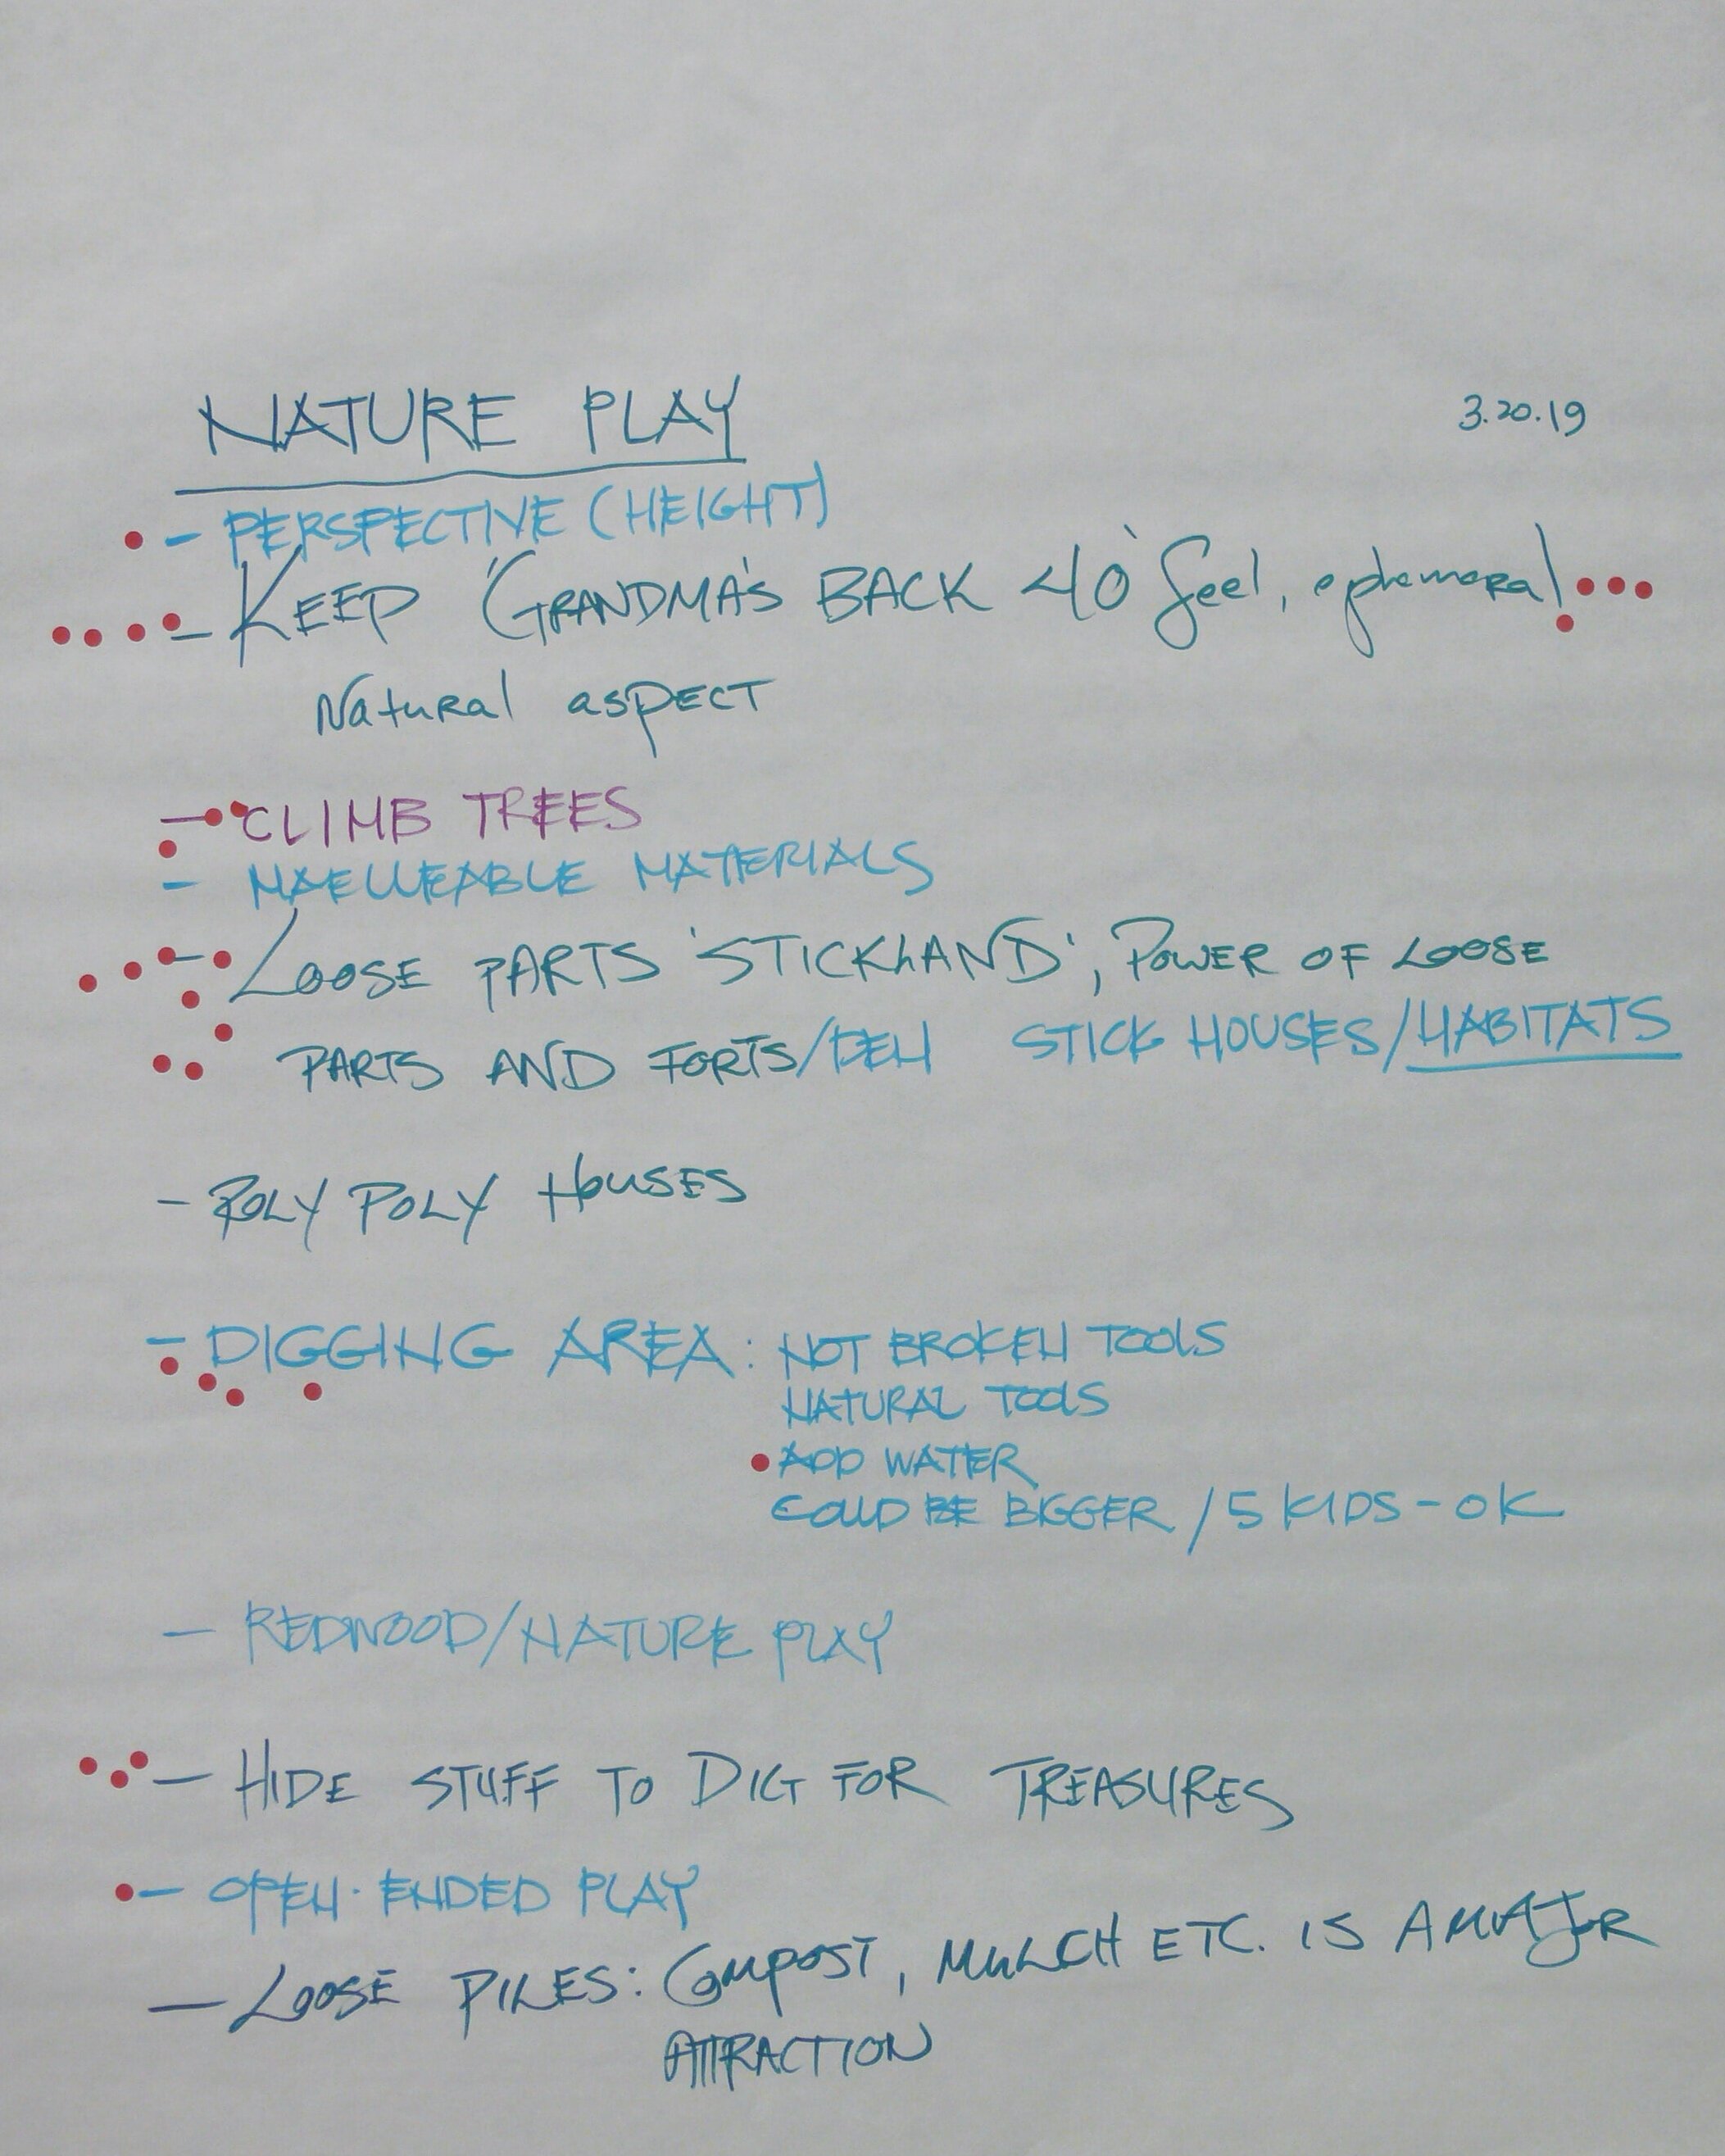 NATURE PLAY
3.20.19
- PERSPECTIVE (HEIGHT)
- KEEP 'GRANDMA'S BACK 40' feel, ephemeral
Natural aspect
- CLIMB TREES
- MAELLEABLE MATERIALS
- LOOSE PARTS 'STICKLAND', POWER OF LOOSE
PARTS AND FORTS/DEN STICK HOUSES/HABITATS
- ROLY POLY HOUSES
- DIGGING AREA: NOT BROKEN TOOLS
NATURAL TOOLS
ADD WATER
COULD BE BIGGER / 5 KIDS - OK
- REDWOOD/NATURE PLAY
- HIDE STUFF TO DIG FOR TREASURES
- OPEN-ENDED PLAY
- LOOSE PILES: COMPOST, MULCH ETC. IS A MAJOR
ATTRACTION